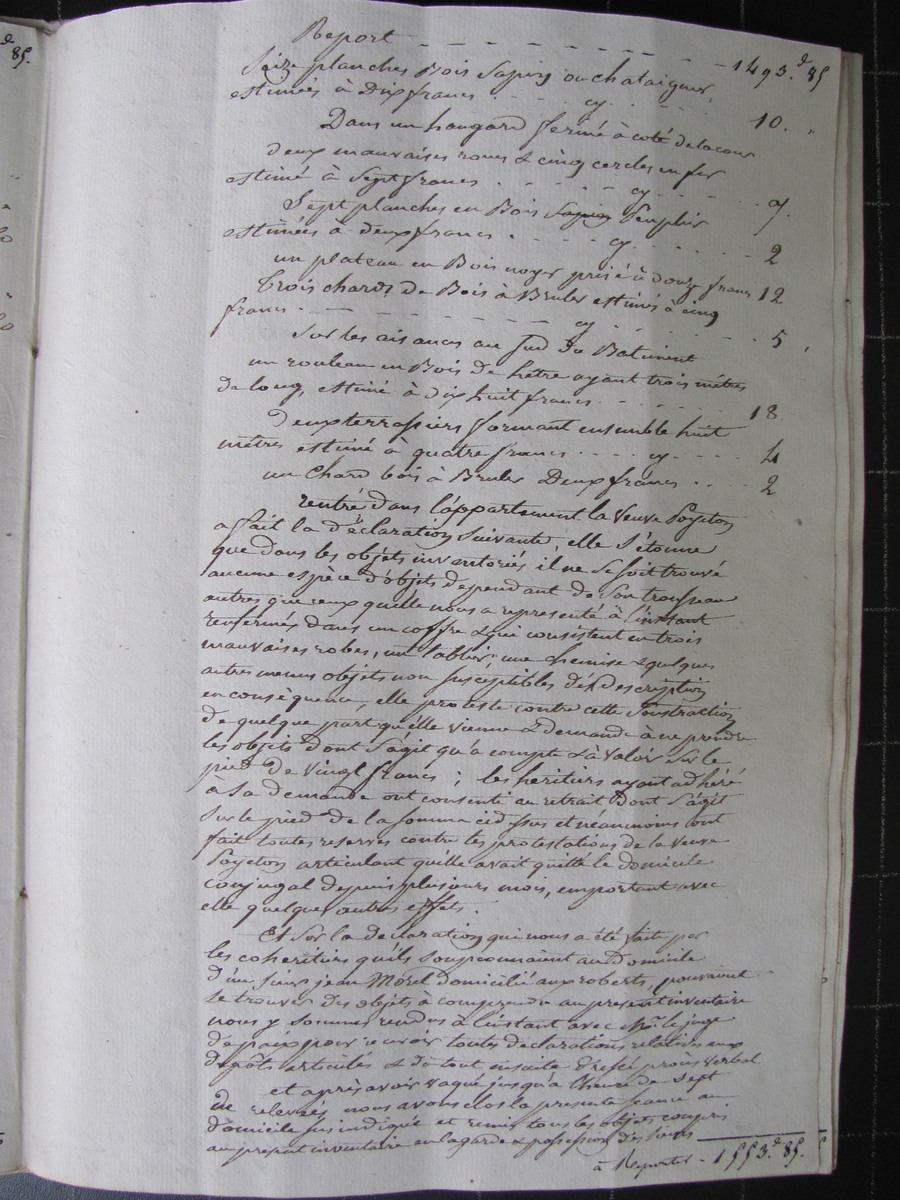 Report - - - - - - - - - 1493.d 85
Seize planches Bois Sapin ou chataigner,
estimées à Dix francs . . . cy . . . 10. "
Dans un hangard fermé à coté de la cour
deux mauvaises roues & cinq cercles en fer
estimé à Sept francs . . . . cy . . . . 7.
Sept planches en Bois Peuplier
estimées à deux francs . . . . cy . . . . . 2
un plateau en Bois noyer prisé à douze francs 12
Trois chards de Bois à Bruler estimés à cinq
francs . - - - - - - - cy . . . . . . 5
Sur les aisances au Sud du Batiment
un rouleau en Bois de hêtre ayant trois mètres
de long, estimé à dix huit francs . . . . . . 18
Deux terrassiers formant ensemble huit
mètres estimé à quatre francs . . . . cy . . . . 4
un Chard bois à Bruler Deux francs . . . . 2
rentré dans l'appartement la Veuve Poyeton
a fait la déclaration suivante, elle s'étonne
que dans les objets inventoriés il ne se soit trouvé
aucune espèce d'objets dependant de son trousseau
autres que ceux qu'elle nous a representé à l'instant
renfermés dans un coffre & qui consistent en trois
mauvaises robes, un tablier, une chemise & quelques
autres menus objets non susceptibles de Description
en conséquence, elle proteste contre cette Soustraction
de quelque part qu'elle vienne & demande à ne prendre
les objets dont s'agit qu'à compte & à valoir sur le
pied de vingt francs ; les heritiers ayant adhéré
à sa demande ont consenti au retrait dont s'agit
sur le pied de la somme ci dessus et néanmoins ont
fait toutes reserves contre les protestations de la Veuve
Poyeton articulant qu'elle avait quitté le domicile
conjugal depuis plusieurs mois, emportant avec
elle quelques autres effets.
Et sur la declaration qui nous a été faite par
les coheritiers qu'ils soupçonnaient au domicile
d'un sieur jean Morel domicilié aux roberts, pouvaient
se trouver des objets à comprendre au present inventaire
nous y sommes rendus à l'instant avec Mr. le juge
de paix pour recevoir toutes declarations relatives aux
depôts articulés & de tout ensuite dressé procès verbal
et après avoir vaqué jusqu'à l'heure de Sept
de relevée nous avons clos la presente seance au
domicile sus indiqué et remis tous les objets compris
au present inventaire en la garde & possession des Sieurs
à Reporter - 1553.d 85.